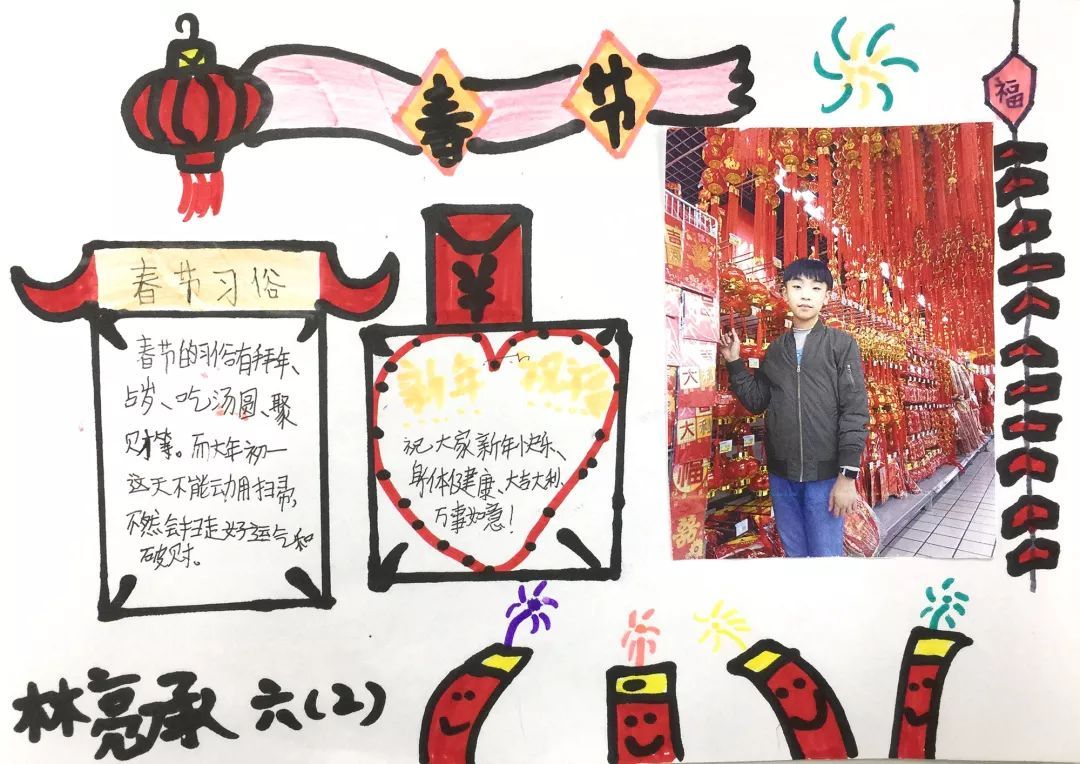 春节
福
春节习俗
春节的习俗有拜年、
占岁、吃汤圆、聚
财等。而大年初一
这天不能动用扫帚,
不然会扫走好运气和
破财。
¥
新年祝福
祝大家新年快乐、
身体健康、大吉大利、
万事如意!
吉
大
大利
福
林亮承 六(2)